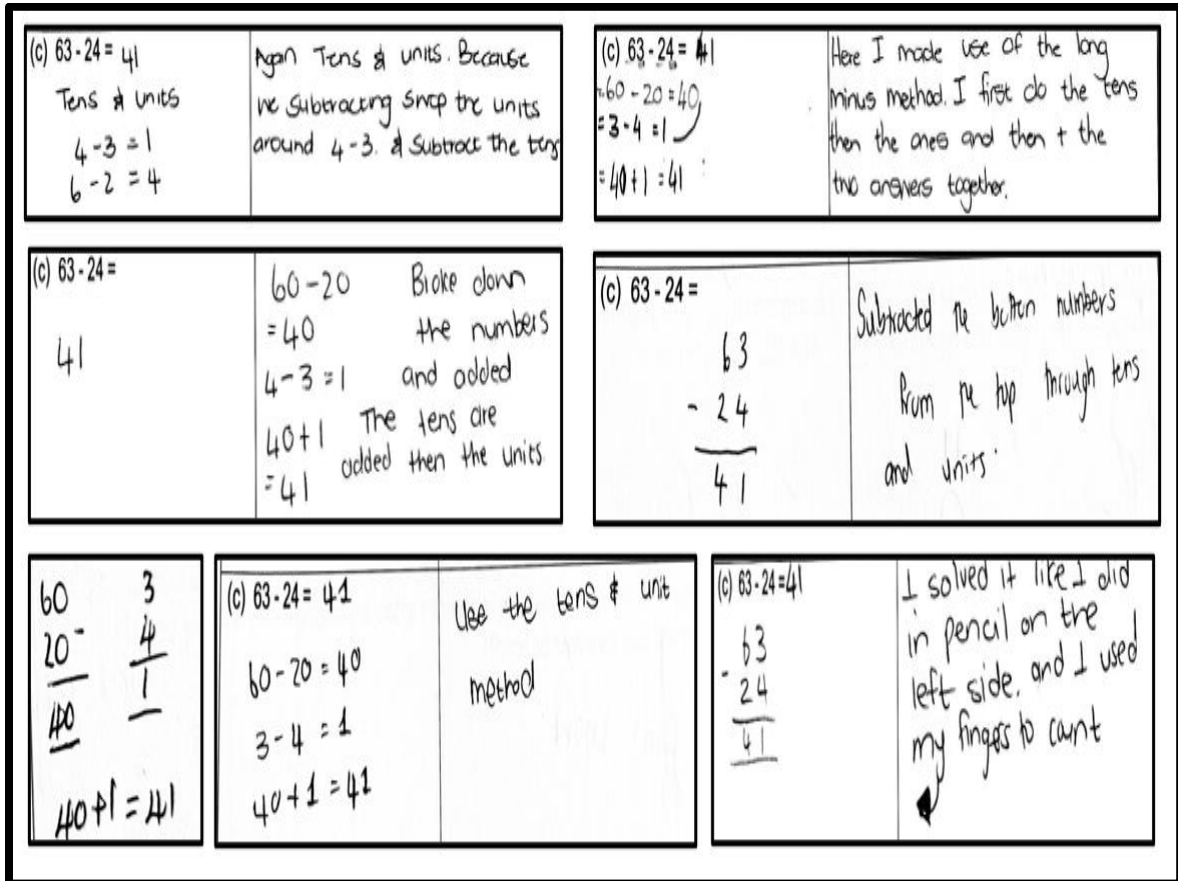 (c) 63 - 24 = 41
Tens & units
4 - 3 = 1
6 - 2 = 4
Again Tens & units. Because
we subtracting swap the units
around 4 - 3. & Subtract the tens
(c) 63 - 24 = 41
= 60 - 20 = 40
= 3 - 4 = 1
= 40 + 1 = 41
Here I made use of the long
minus method. I first do the tens
then the ones and then + the
two answers together.
(c) 63 - 24 =
41
60 - 20
= 40
4 - 3 = 1
40 + 1
= 41
Broke down
the numbers
and added
The tens are
added then the units
(c) 63 - 24 =
63
- 24
41
Subtracted the bottom numbers
from the top through tens
and units.
60
20 -
40
3
4
1
40 + 1 = 41
(c) 63 - 24 = 41
60 - 20 = 40
3 - 4 = 1
40 + 1 = 41
Use the tens & unit
method
(c) 63 - 24 = 41
63
- 24
41
I solved it like I did
in pencil on the
left side, and I used
my fingers to count